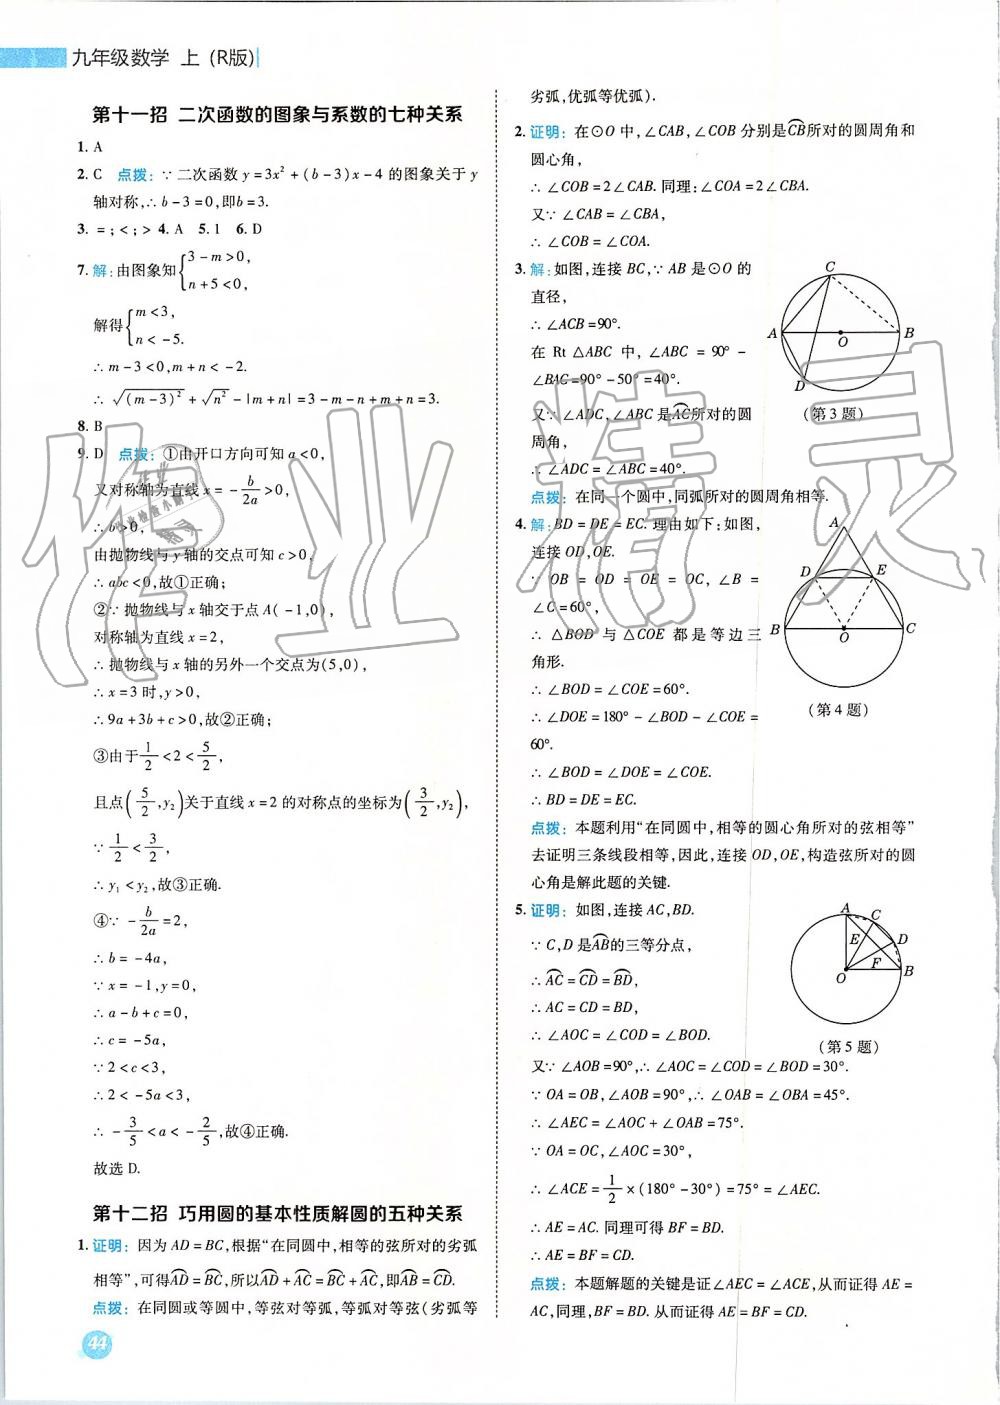 九年级数学 上 (R版)
第十一招 二次函数的图象与系数的七种关系
1. A
2. C 点拨：∵二次函数 y=3x²+(b-3)x-4 的图象关于 y
轴对称,∴b-3=0,即b=3.
3. =;<;> 4. A 5. 1 6. D
7. 解:由图象知{3-m>0,
n+5<0,
解得{m<3,
n<-5.
∴m-3<0,m+n<-2.
∴√(m-3)²+√n²-|m+n|=3-m-n+m+n=3.
8. B
9. D 点拨：①由开口方向可知 a<0,
又对称轴为直线 x=-b/2a>0,
∴b>0,
由抛物线与y轴的交点可知 c>0,
∴abc<0,故①正确;
②∵抛物线与x轴交于点A(-1,0),
对称轴为直线 x=2,
∴抛物线与x轴的另外一个交点为(5,0),
∴x=3时,y>0,
∴9a+3b+c>0,故②正确;
③由于1/2<2<5/2,
且点(5/2,y₂)关于直线 x=2 的对称点的坐标为(3/2,y₂),
∵1/2<3/2,
∴y₁<y₂,故③正确.
④∵-b/2a=2,
∴b=-4a,
∵x=-1,y=0,
∴a-b+c=0,
∴c=-5a,
∵2<c<3,
∴2<-5a<3,
∴-3/5<a<-2/5,故④正确.
故选 D.
第十二招 巧用圆的基本性质解圆的五种关系
1. 证明：因为 AD=BC,根据“在同圆中,相等的弦所对的劣弧
相等”,可得AD=BC,所以AD+AC=BC+AC,即AB=CD.
点拨：在同圆或等圆中,等弦对等弧,等弧对等弦(劣弧等
44
劣弧,优弧等优弧).
2. 证明：在⊙O 中,∠CAB,∠COB 分别是CB所对的圆周角和
圆心角,
∴∠COB=2∠CAB. 同理:∠COA=2∠CBA.
又∵∠CAB=∠CBA,
∴∠COB=∠COA.
3. 解:如图,连接 BC,∵AB 是⊙O 的
直径,
∴∠ACB=90°.
在 Rt△ABC 中,∠ABC=90°-
∠BAC=90°-50°=40°.
又∵∠ADC,∠ABC 是AC所对的圆
周角,
∴∠ADC=∠ABC=40°.
点拨：在同一个圆中,同弧所对的圆周角相等.
C
A
O
B
D
(第3题)
4. 解:BD=DE=EC. 理由如下:如图,
连接 OD,OE.
∵OB=OD=OE=OC,∠B=
∠C=60°,
∴△BOD 与△COE 都是等边三
角形.
∴∠BOD=∠COE=60°.
∴∠DOE=180°-∠BOD-∠COE=
60°.
∴∠BOD=∠DOE=∠COE.
∴BD=DE=EC.
A
D
E
B
O
C
(第4题)
点拨：本题利用“在同圆中,相等的圆心角所对的弦相等”
去证明三条线段相等,因此,连接 OD,OE,构造弦所对的圆
心角是解此题的关键.
5. 证明：如图,连接 AC,BD.
∵C,D 是AB的三等分点,
∴AC=CD=BD,
∴AC=CD=BD,
∴∠AOC=∠COD=∠BOD.
A
C
D
E
F
O
B
(第5题)
又∵∠AOB=90°,∴∠AOC=∠COD=∠BOD=30°.
∵OA=OB,∠AOB=90°,∴∠OAB=∠OBA=45°.
∴∠AEC=∠AOC+∠OAB=75°.
∵OA=OC,∠AOC=30°,
∴∠ACE=1/2×(180°-30°)=75°=∠AEC.
∴AE=AC. 同理可得 BF=BD.
∴AE=BF=CD.
点拨：本题解题的关键是证∠AEC=∠ACE,从而证得 AE=
AC,同理,BF=BD. 从而证得 AE=BF=CD.
作业精灵